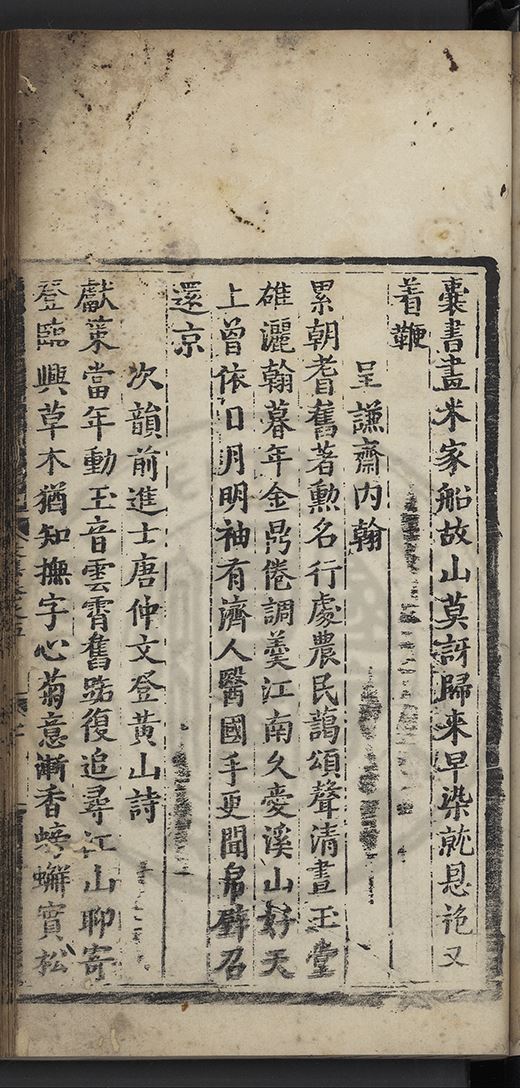 囊書畫米家船故山莫訝歸來早染就恩袍又
着鞭
呈謙齋内翰
累朝耆舊著勳名行處農民藹頌聲清晝玉堂
磓灑翰暮年金鼎倦調羹江南久愛溪山好天
上曾依日月明袖有濟人醫國手更聞帛璧召
還京
次韻前進士唐仲文登黄山詩
獻策當年動玉音雲霄舊踏復追尋江山聊寄
登臨興草木猶知撫字心菊意漸香螃蠏實松